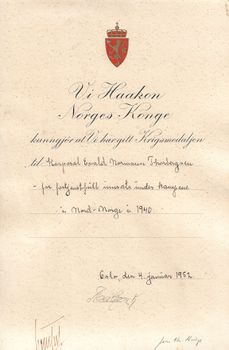 Vi Haakon
Norges Konge
kunngjør at Vi har gitt Krigsmedaljen
til Korporal Evald Normann Thorbergsen
- for fortjenstfull innsats under kampene
i Nord-Norge i 1940.
Oslo, den 4. januar 1952